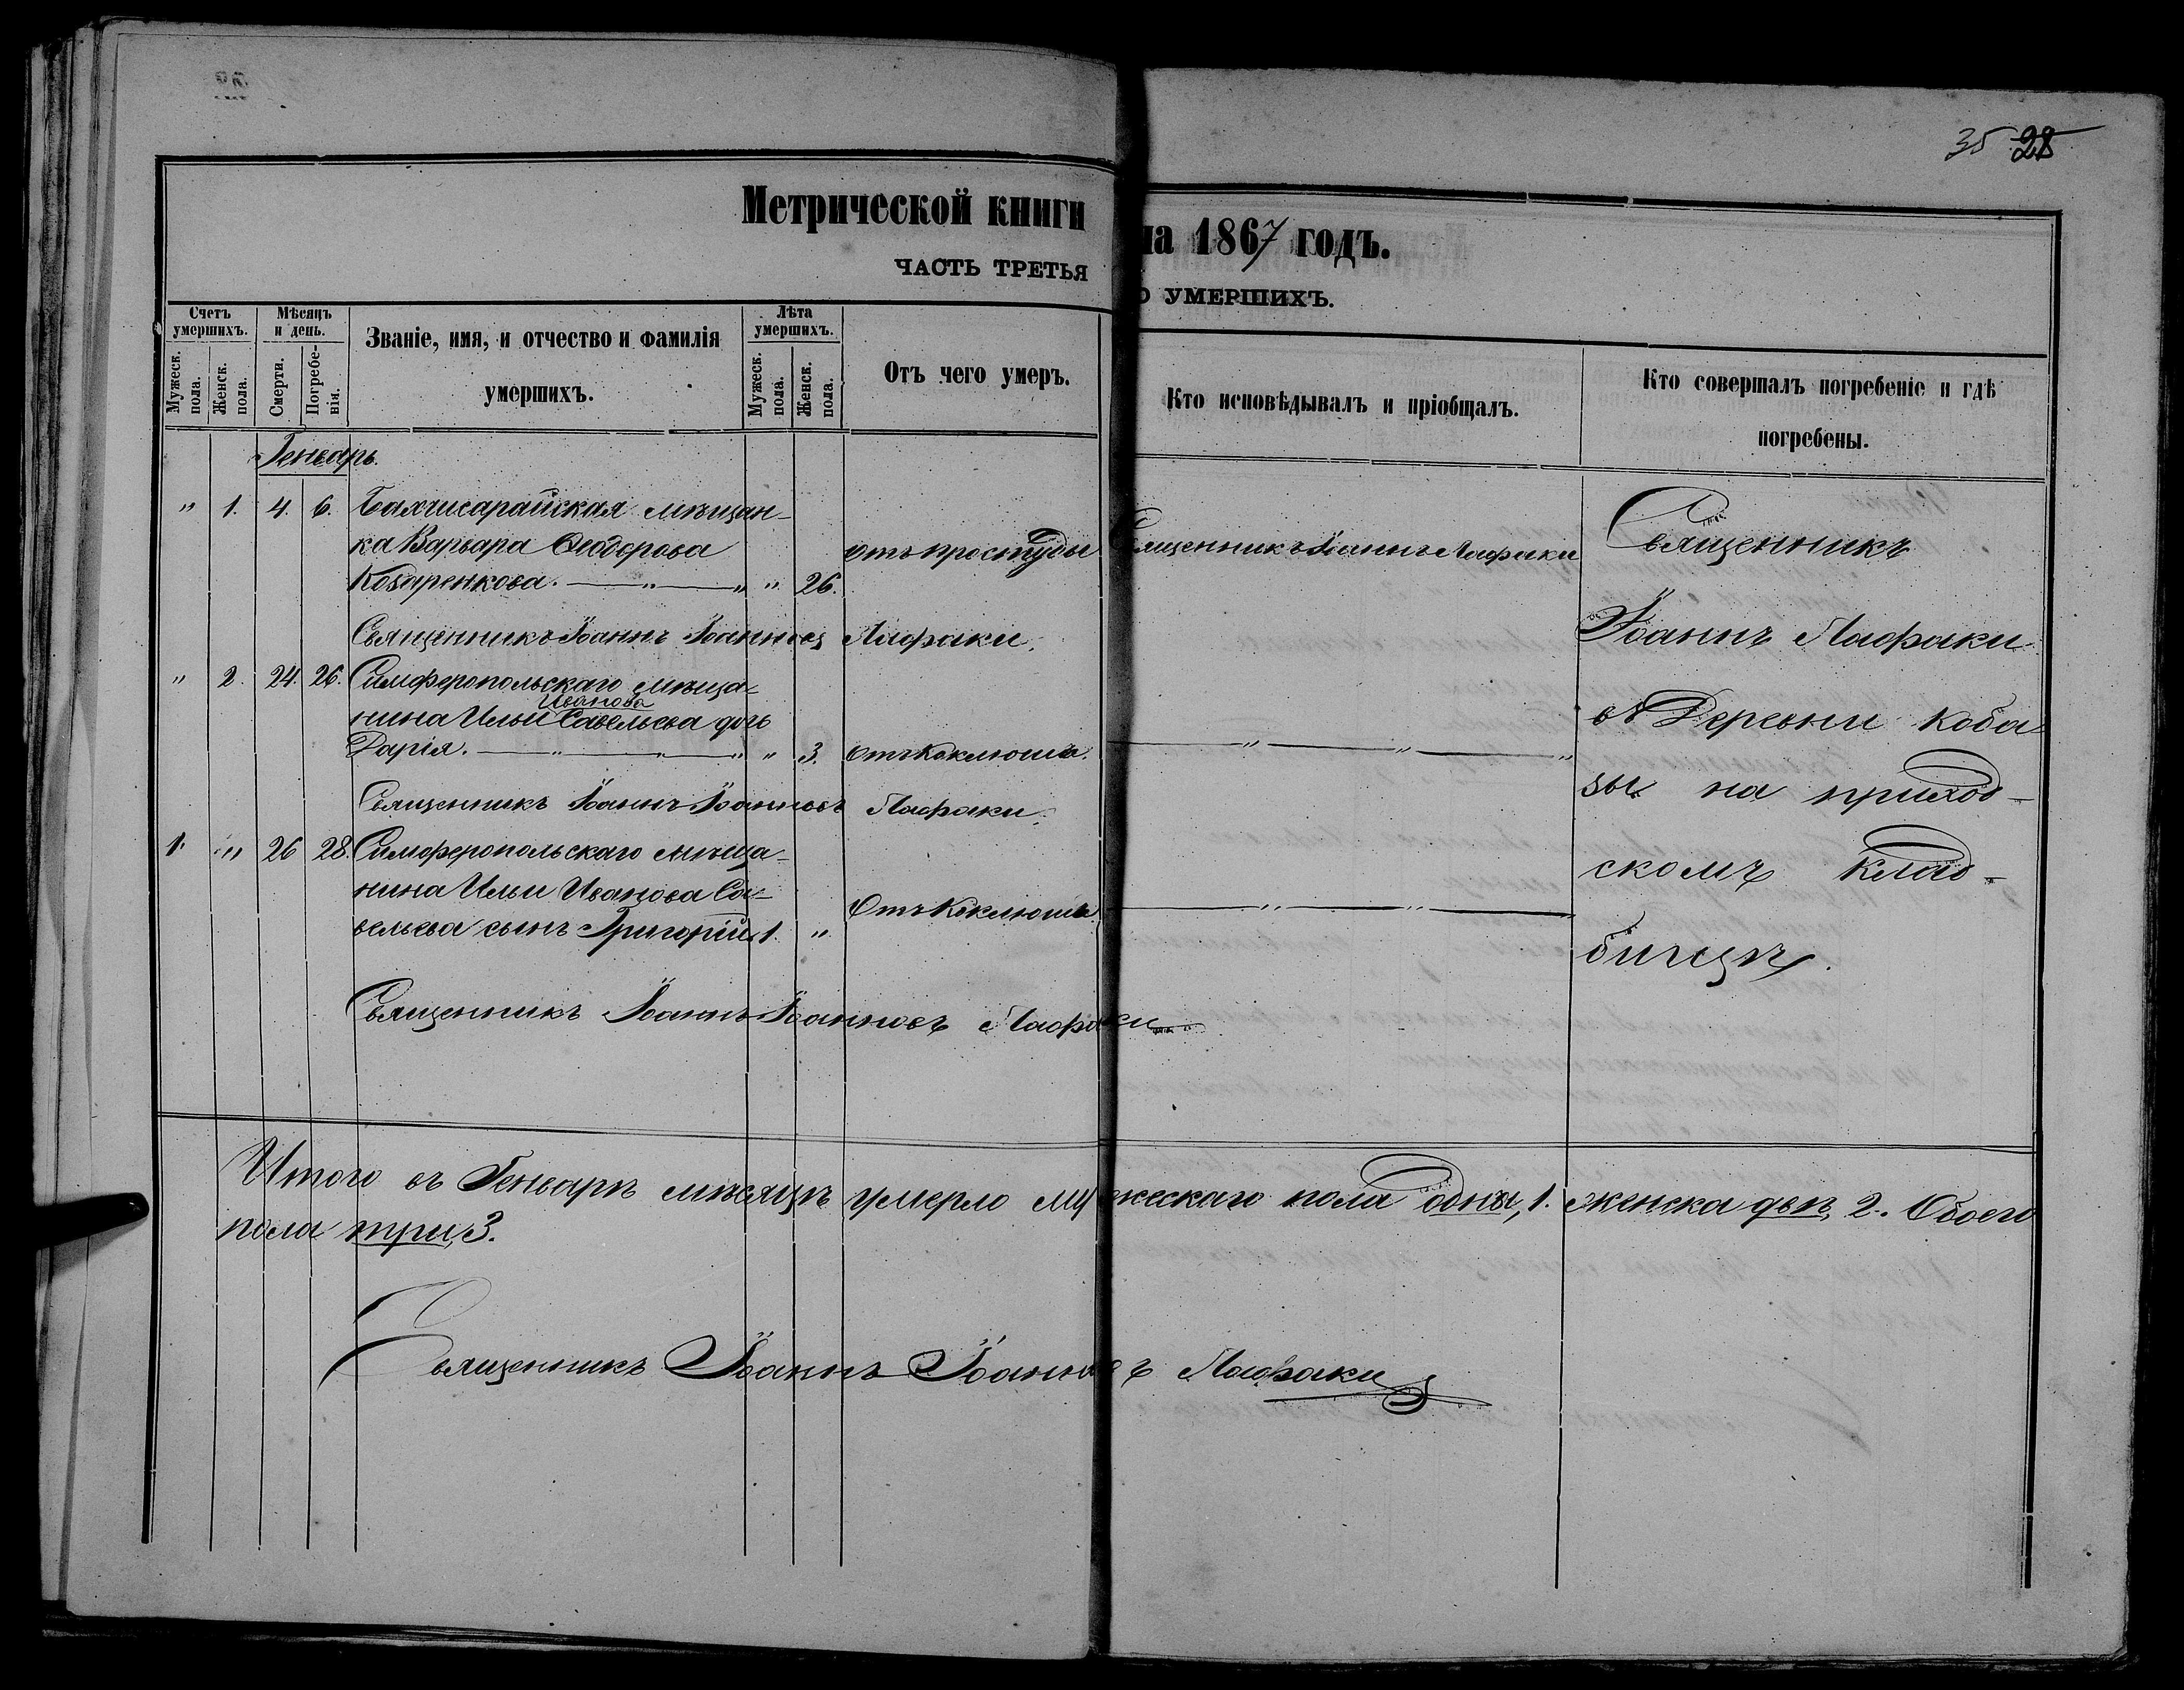 35 28
Метрической книги на 1867 годъ.
ЧАСТЬ ТРЕТЬЯ О УМЕРШИХЪ.
Счетъ умершихъ.
Мужеск. пола.
Женск. пола.
Мѣсяцъ и день.
Смерти.
Погребе-
нія.
Званіе, имя, и отчество и фамилія
умершихъ.
Лѣта умершихъ.
Мужеск. пола.
Женск. пола.
Отъ чего умеръ.
Кто исповѣдывалъ и пріобщалъ.
Кто совершалъ погребеніе и гдѣ
погребены.
Генварь.
" 1. 4. 6. Бахчисарайская мѣщан-
ка Варвара Ѳеодорова
отъ простуды Священникъ Іоаннъ Лафаки
" 26.
Священникъ Іоаннъ Іоанновъ Лафаки.
" 2. 24. 26. Симферопольскаго мѣща-
Иванова
нина Ильи Савельева дочь
Дарія. " " " " 3. Отъ Коклюша. " " "
Священникъ Іоаннъ Іоанновъ Лафаки.
1. " 26 28. Симферопольскаго мѣща-
нина Ильи Иванова Са-
вельева сынъ Григорій 1. " Отъ Коклюша " "
Священникъ Іоаннъ Іоанновъ Лафаки
Священникъ
Іоаннъ Лафаки
въ Деревни Коба-
зы на приход-
скомъ клад-
бищѣ.
Итого въ Генварѣ мѣсяцѣ умерло мужескаго пола 1. женска двѣ, 2. Обоего
пола три, 3.
Священникъ Іоаннъ Іоанновъ Лафаки